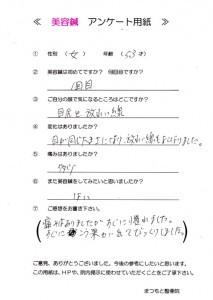 ≪ 美容鍼 アンケート用紙 ≫
① 性別 （女） 年齢（53才）
② 美容鍼は初めてですか？ 何回目ですか？
1回目
③ ご自分の顔で気になるところはどこですか？
目尻と放れい線
④ 変化はありましたか？
目が同じ大きさになり、放れい線もよくなりました。
⑤ 痛みはありましたか？
少し
⑥ また美容鍼をしてみたいと思いましたか？
はい
⑦ ご感想をお書き下さい。
痛みはありましたがすぐに慣れました。
すぐに効果が出てびっくりしました。
ご意見、ありがとうございました。今後の参考にしたいと思います。
この用紙は、HPや、院内掲示に使わせていただくことをご了承下さい。
まつもと整骨院